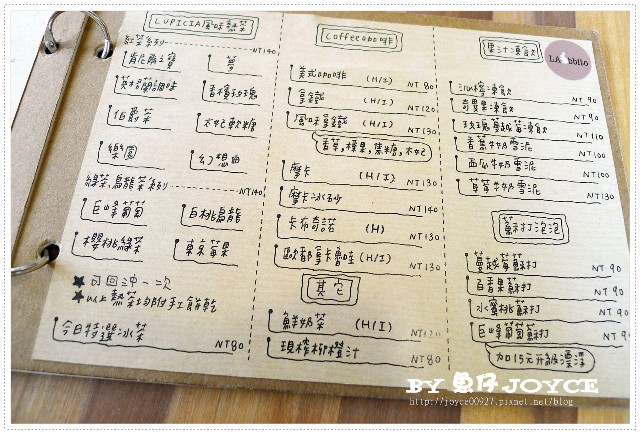 LUPICIA風味熱茶
紅茶系列 NT140
肯尼亞之寶
夢
英格蘭調味
香檳玫瑰
伯爵茶
太妃軟糖
樂園
幻想曲
綠茶,烏龍茶系列 NT140
巨峰葡萄
白桃烏龍
櫻桃綠茶
東京莓果
★可回沖一次
★以上熱茶均附手工餅乾
今日特選冰茶 NT80
Coffee咖啡
美式咖啡 (H/I) NT80
拿鐵 (H/I) NT120
風味拿鐵 (H/I) NT130
香草,榛果,焦糖,太妃
摩卡 (H/I) NT130
摩卡冰砂 NT140
卡布奇諾 (H) NT130
歐都拿卡魯哇 (H/I) NT130
其它
鮮奶茶 (H/I) NT120
現榨柳橙汁 NT80
果汁凍飲
LA bbllo
冰檸凍飲 NT90
奇異果凍飲 NT90
玫瑰蔓越莓凍飲 NT110
香蕉牛奶雪泥 NT100
西瓜牛奶雪泥 NT100
草莓牛奶雪泥 NT130
蘇打泡泡
蔓越莓蘇打 NT90
百香果蘇打 NT90
水蜜桃蘇打 NT90
巨峰葡萄蘇打 NT90
加15元升級漂浮
BY 魚仔JOYCE
http://joyce00927.pixnet.net/blog